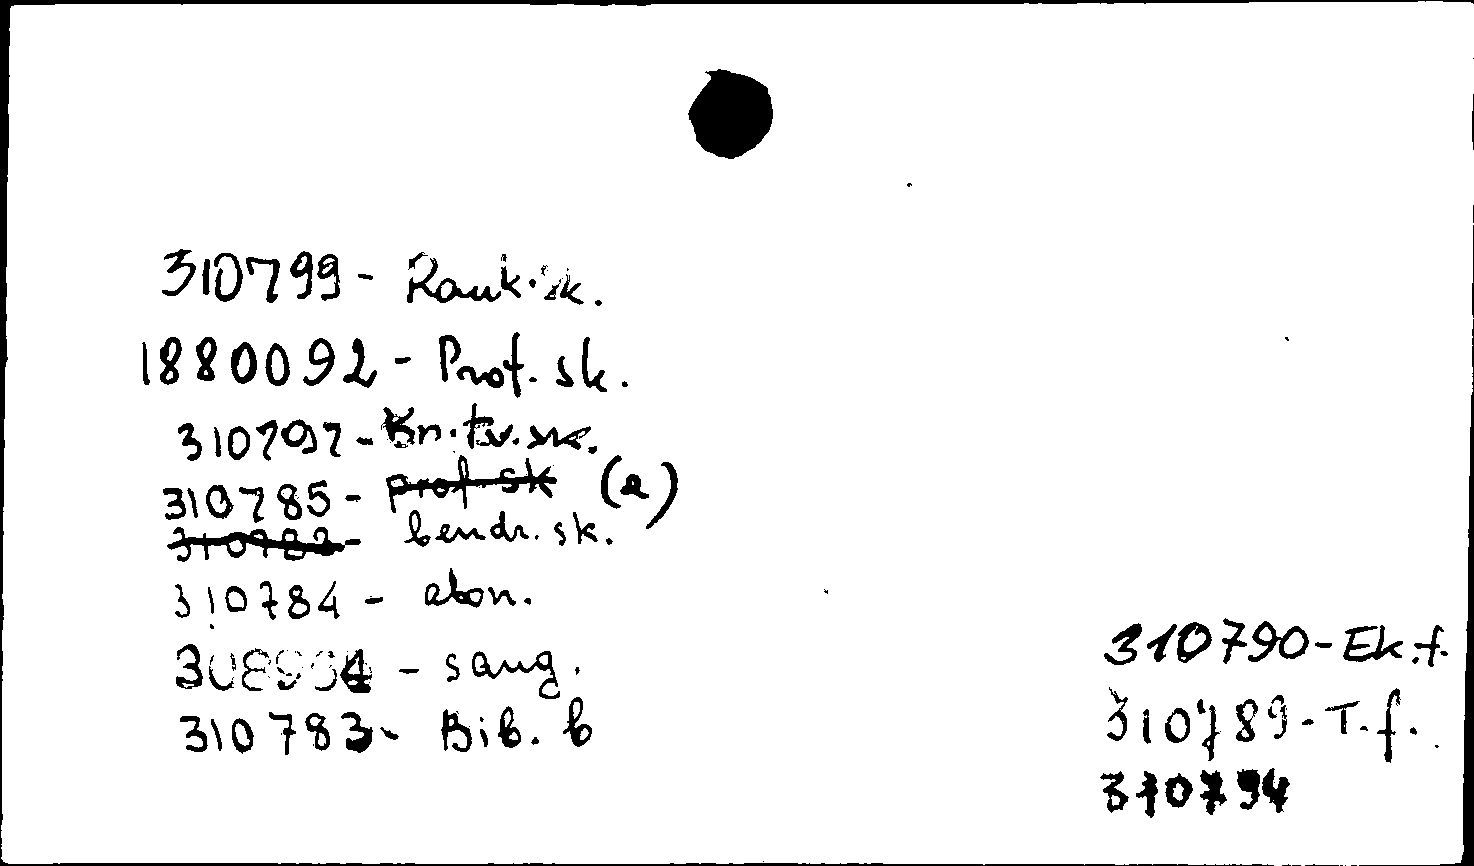 310799 - Rank. sk.
1880092 - Prof. sk.
310797 - Kn. tv. sk.
310785 - prof sk (a)
310783 - bendr. sk.
310784 - abon.
308994 - saug.
310783 - Bib. b
310790 - Ek. f.
310789 - T. f.
310794